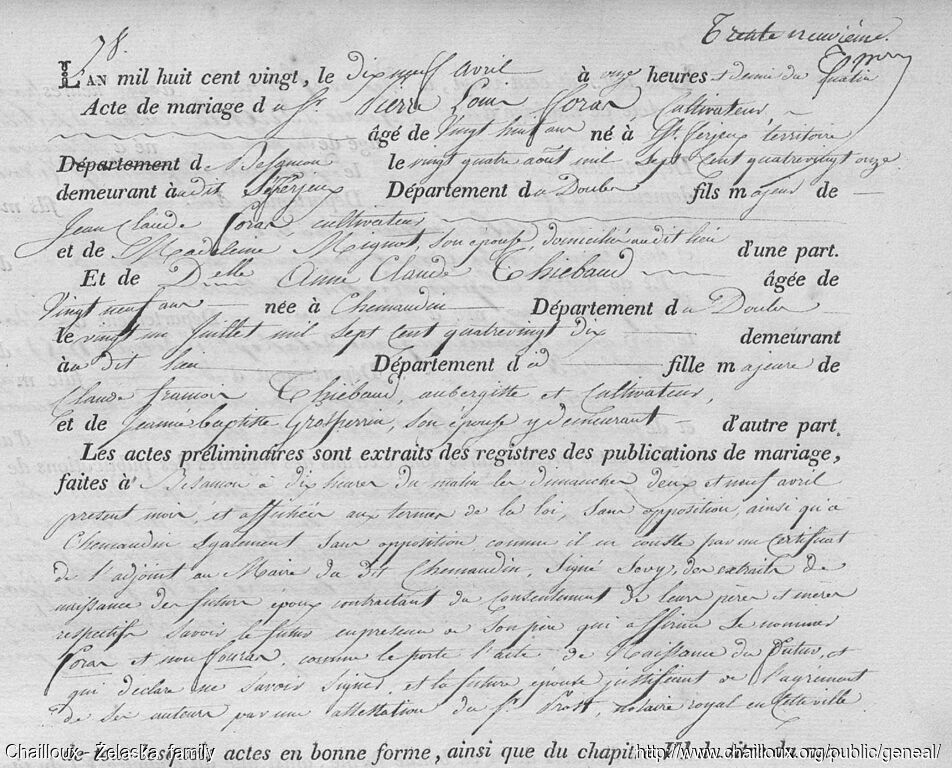 78.
Trente neuvième.
LAN mil huit cent vingt, le dix neuf avril à onze heures et demie du matin
Acte de mariage d u Sr. Pierre Louis Coran, Cultivateur,
âgé de vingt huit ans né à St. ferjeux territoire
Département de Besançon le vingt quatre août mil sept cent quatre vingt onze
demeurant à audit St ferjeux Département du Doubs fils majeur de
Jean Claude Coran cultivateur
et de Madeleine Mignot, son épouse, domiciliés audit lieu d'une part.
Et de Delle Anne Claude Thiébaud âgée de
vingt neuf ans née à Chemaudin Département du Doubs
le vingt un juillet mil sept cent quatre vingt dix demeurant
à au dit lieu Département id fille majeure de
Claude françois Thiébaud, aubergiste et cultivateur,
et de Jeanne baptiste Grosperrin, son épouse y demeurant d'autre part.
Les actes préliminaires sont extraits des registres des publications de mariage,
faites à Besançon à dix heures du matin les dimanches deux et neuf avril
présent mois, et affichées aux termes de la loi, sans opposition, ainsi qu'à
Chemaudin également sans opposition comme il en conste par un Certificat
de l'adjoint au Maire du dit Chemaudin, signé Jovy, des extraits de
naissance des futurs époux contractant du consentement de leurs pères et mères
respectifs savoir le futur en présence de son père qui affirme se nommer
Coran et non Couran, comme le porte l'acte de Naissance du futur, et
qui déclare ne savoir signer, et la future épouse justifiant de l'agrément
de ses auteurs par une attestation du Sr. Prost, notaire royal en cette ville
de tous lesquels actes en bonne forme, ainsi que du chapitre VI du titre du
Chailloux-Zelaska family
http://www.chailloux.org/public/geneal/